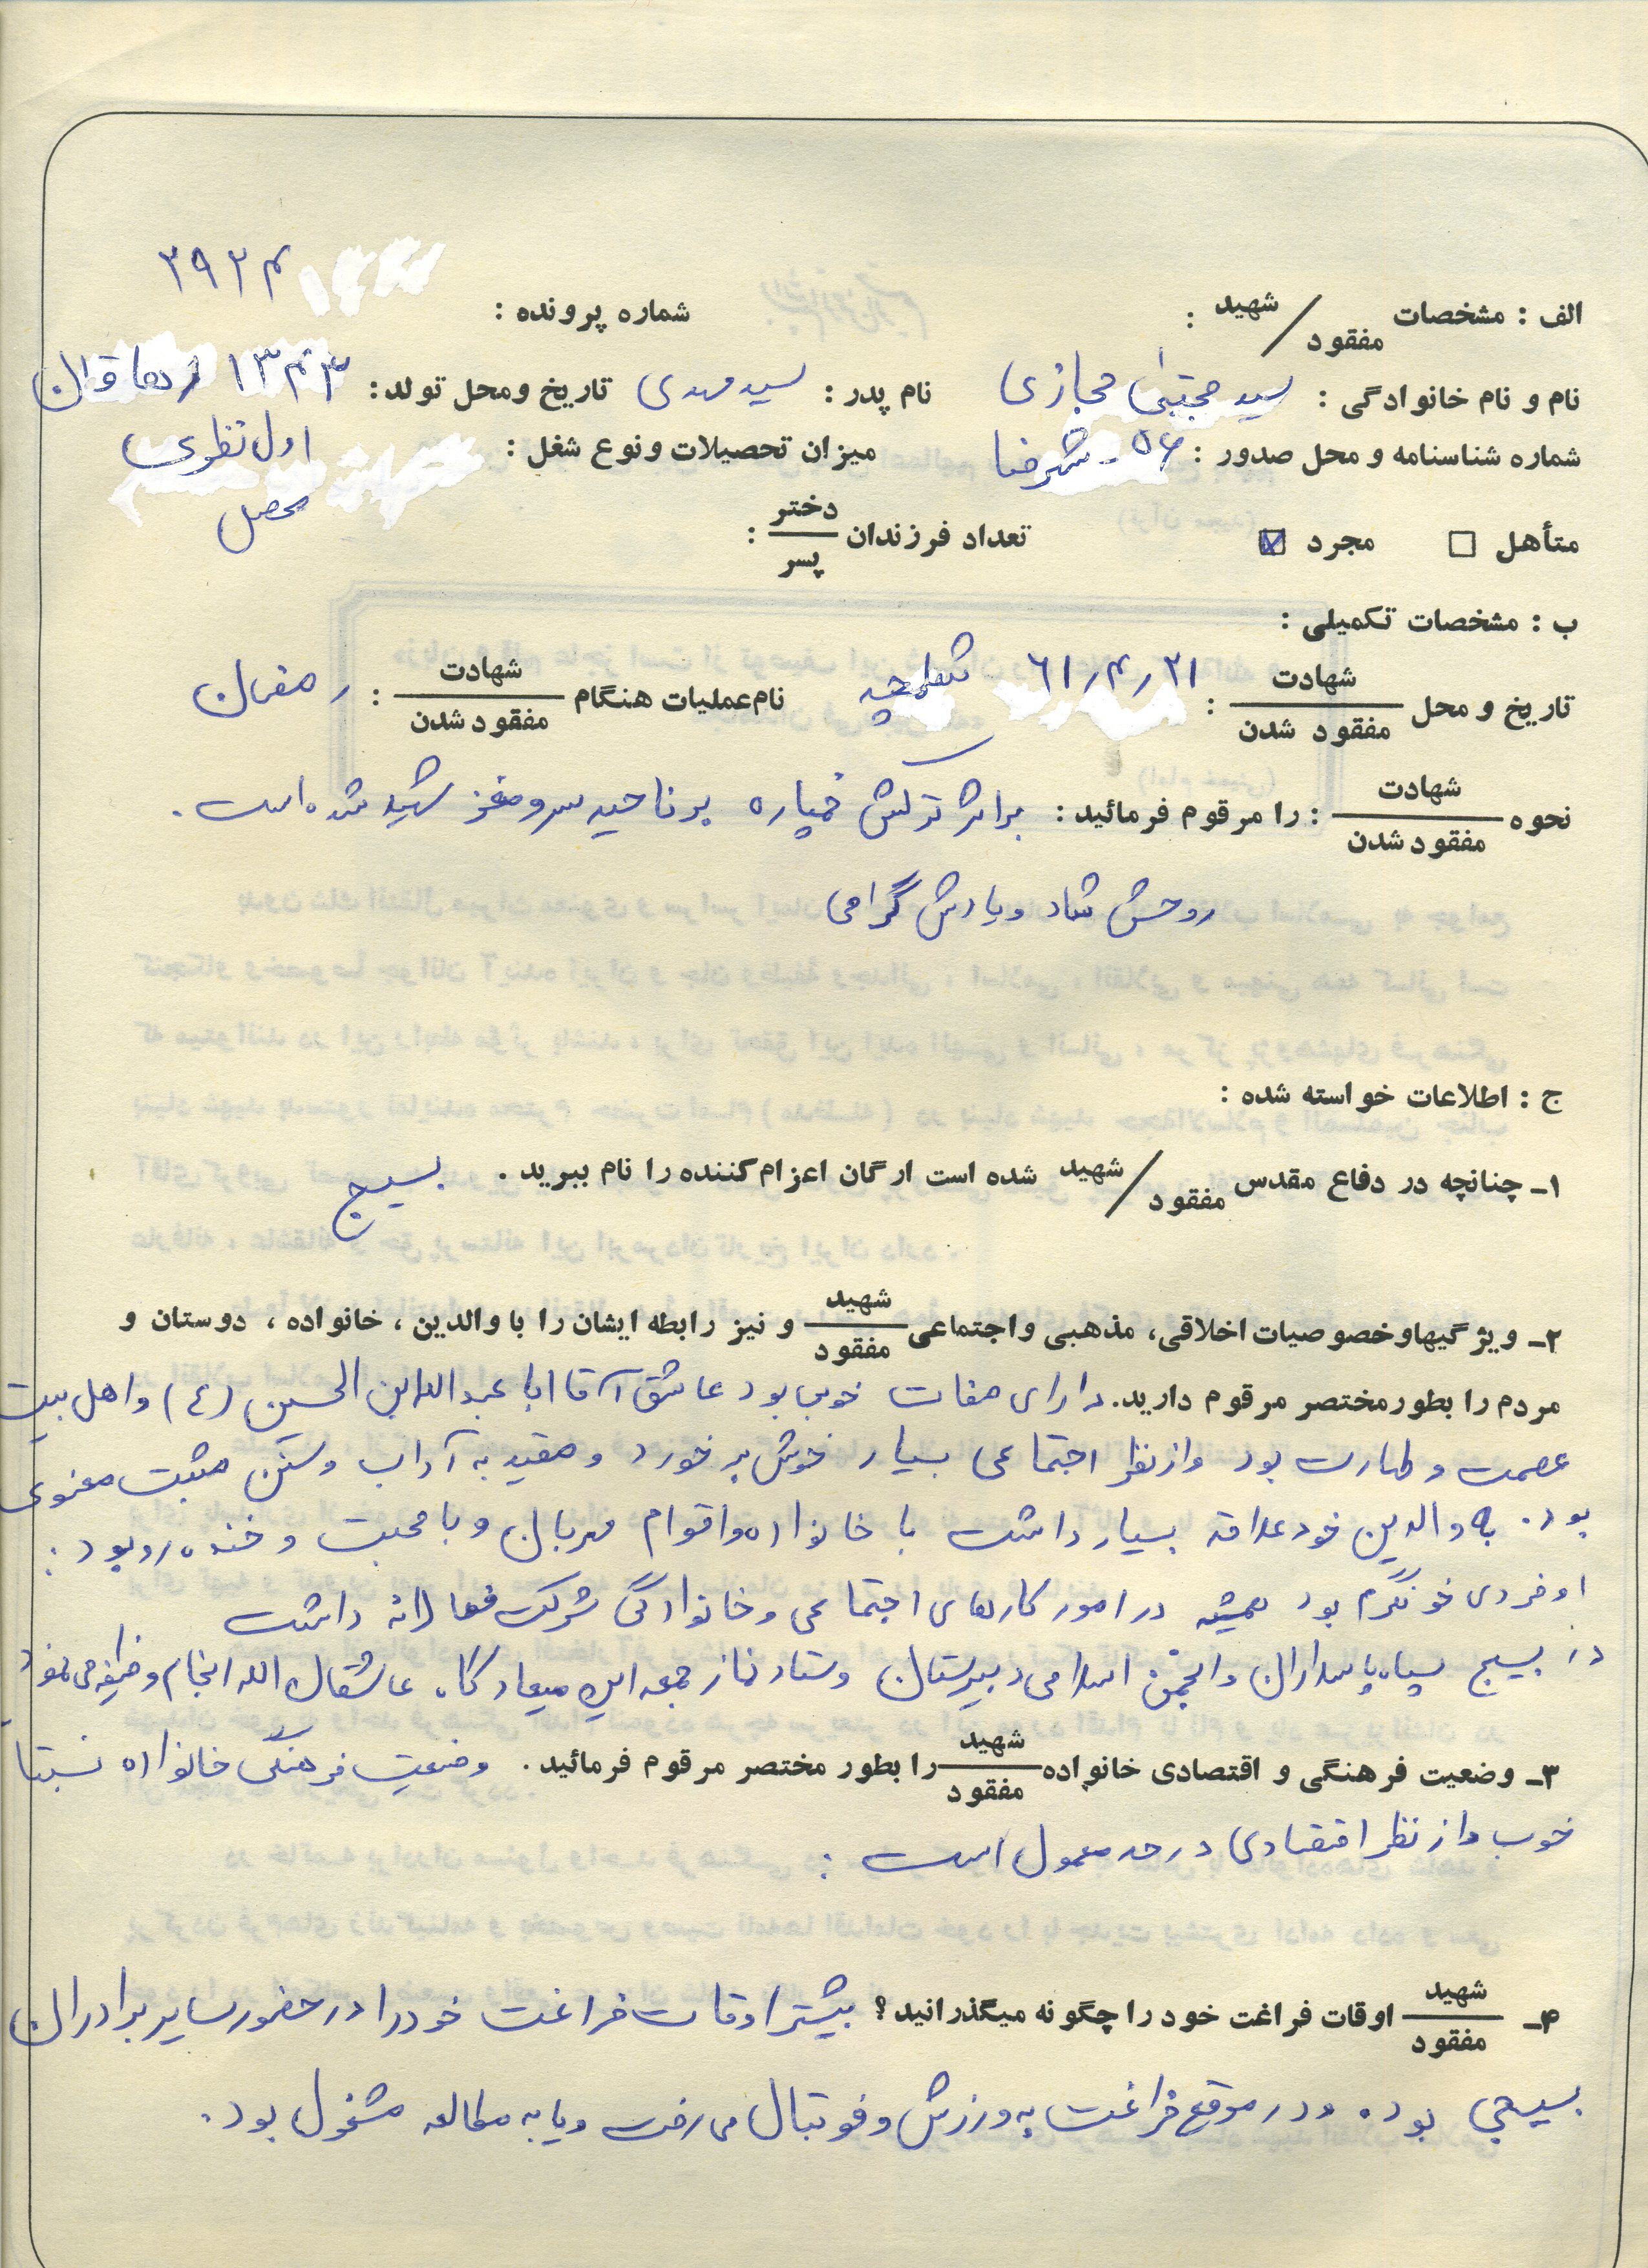 الف : مشخصات شهید / مفقود :
شماره پرونده : ۳۹۲۴
نام و نام خانوادگی : سید مجتبی حجازی نام پدر : سید مهدی تاریخ ومحل تولد : ۱۳۴۳ دهاقان
شماره شناسنامه و محل صدور : ۵۶ - شهرضا میزان تحصیلات ونوع شغل : اول نظری
محصل
متأهل ☐ مجرد ☑ تعداد فرزندان دختر / پسر :
ب : مشخصات تکمیلی :
تاریخ و محل شهادت / مفقود شدن : ۶۱/۴/۲۱ شلمچه نام عملیات هنگام شهادت / مفقود شدن : رمضان
نحوه شهادت / مفقود شدن : را مرقوم فرمائید : براثر ترکش خمپاره بر ناحیه سر و مغز شهید شده است .
روحش شاد و یادش گرامی
ج : اطلاعات خواسته شده :
۱ـ چنانچه در دفاع مقدس شهید / مفقود شده است ارگان اعزام کننده را نام ببرید . بسیج
۲ـ ویژگیهاوخصوصیات اخلاقی، مذهبی واجتماعی شهید / مفقود و نیز رابطه ایشان را با والدین ، خانواده ، دوستان و
مردم را بطور مختصر مرقوم دارید. دارای صفات خوبی بود عاشق آقا ابا عبدالله الحسین (ع) و اهل بیت
عصمت و طهارت بود و از نظر اجتماعی بسیار خوش برخورد و مقید به آداب و سنن مثبت معنوی
بود . به والدین خود علاقه بسیار داشت با خانواده و اقوام مهربان و با محبت و خنده رو بود :
او فردی خونگرم بود همیشه در امور کارهای اجتماعی و خانوادگی شرکت فعالانه داشت
در بسیج سپاه پاسداران و انجمن اسلامی دبیرستان و ستاد نماز جمعه این میعادگاه عاشقان الله انجام وظیفه می نمود
۳ـ وضعیت فرهنگی و اقتصادی خانواده شهید / مفقود را بطور مختصر مرقوم فرمائید . وضعیت فرهنگی خانواده نسبتا
خوب و از نظر اقتصادی در حد معمول است :
۴ـ شهید / مفقود اوقات فراغت خود را چگونه میگذرانید؟ بیشتر اوقات فراغت خود را در حضور سایر برادران
بسیجی بود . و در موقع فراغت به ورزش و فوتبال می رفت و یا به مطالعه مشغول بود .